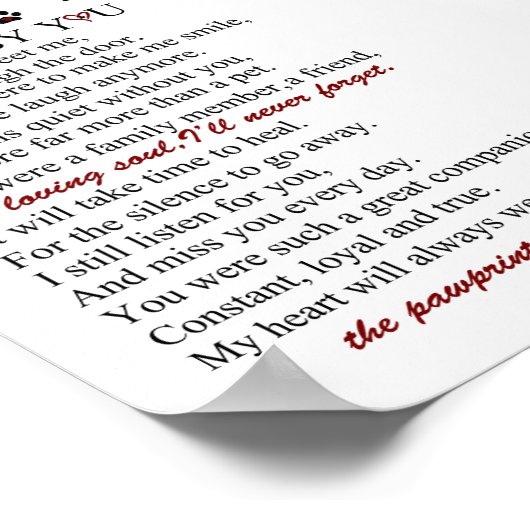 Y YOU
eet me,
gh the door.
ere to make me smile,
e laugh anymore.
is quiet without you,
re far more than a pet.
were a family member,a friend,
loving soul,I'll never forget.
t will take time to heal.
For the silence to go away.
I still listen for you,
And miss you every day.
You were such a great companio
Constant, loyal and true.
My heart will always we
the pawprint